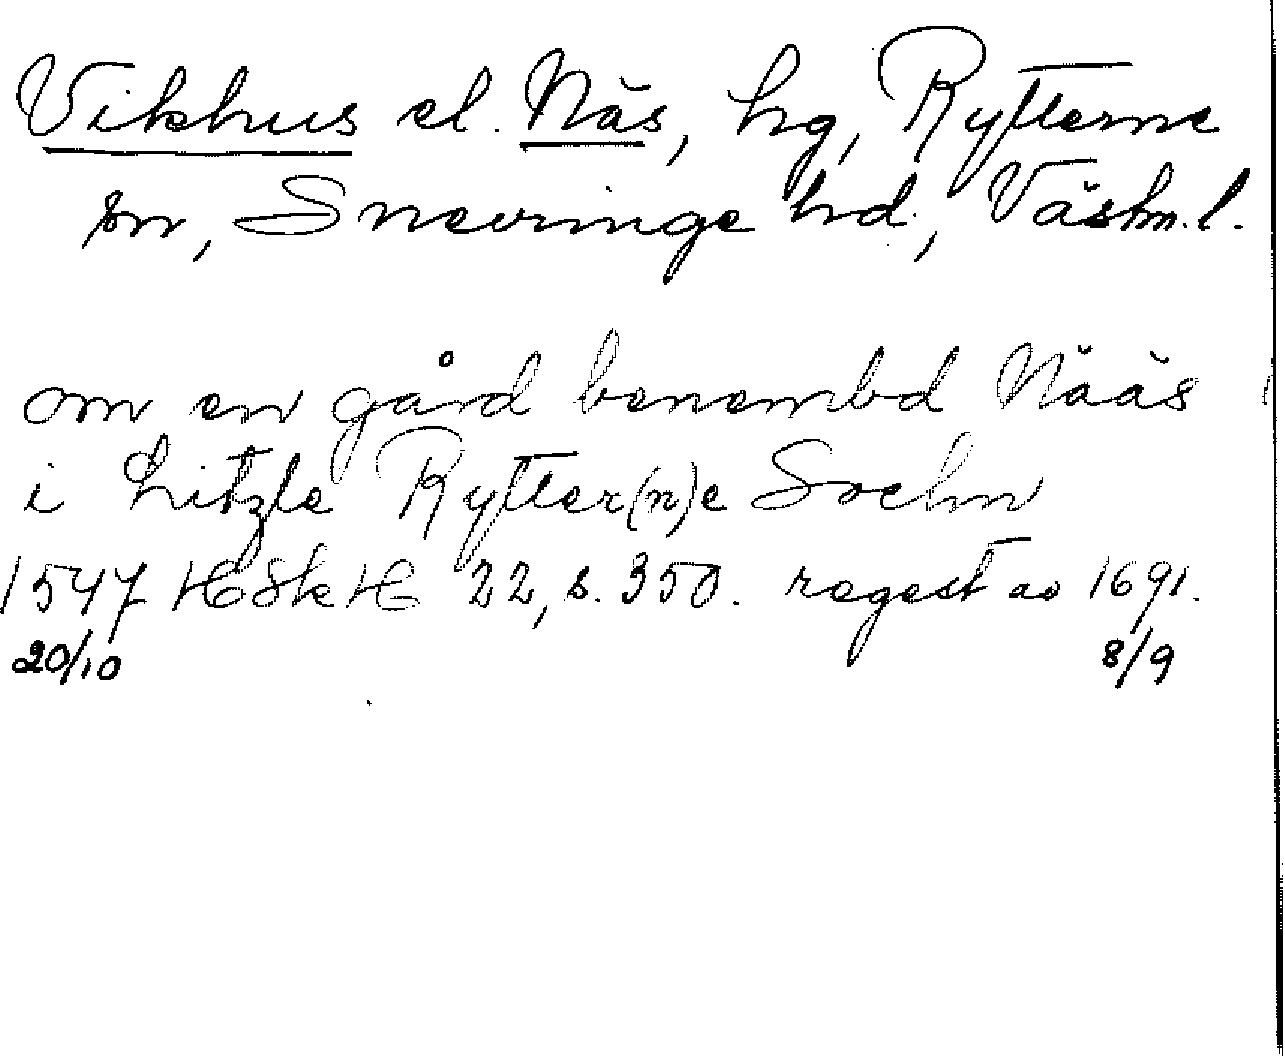 Vikhus el. Näs, hg, Rytterne
sn, Snevringe hd., Västm.l.
om en gård benembd Nääs
i Litzle Rytter(n)e Sochn
1547 HSkH 22, s. 350. regest av 1691.
20/10 8/9